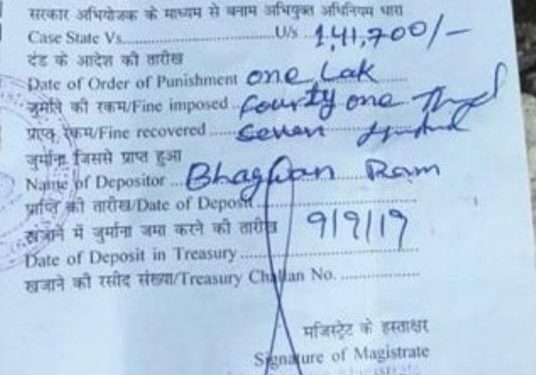 सरकार अभियोजक के माध्यम से बनाम अभियुक्त अधिनियम धारा
Case State Vs..................U/s 1,41,700/-
दंड के आदेश की तारीख
Date of Order of Punishment one Lak
जुर्माने की रकम/Fine imposed fourty one
प्राप्त रकम/Fine recovered seven
जुर्माना जिससे प्राप्त हुआ
Name of Depositor Bhagwan Ram
प्राप्ति की तारीख/Date of Deposit
खजाने में जुर्माना जमा करने की तारीख 9/9/19
Date of Deposit in Treasury
खजाने की रसीद संख्या/Treasury Challan No.
मजिस्ट्रेट के हस्ताक्षर
Signature of Magistrate